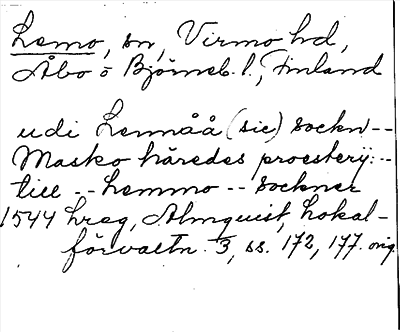 Lemo, sn, Virmo hd,
Åbo o Björneb. l., Finland
udi Lemåå (sic) sockn --
Masko häredes proesterij: --
till -- Lemmo -- sockner
1544 hreg, Almquist, Lokal-
förvaltn. 3, ss. 172, 177. orig.